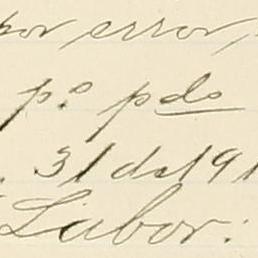 por error,
p.º pdo
31 de 191
Labor: